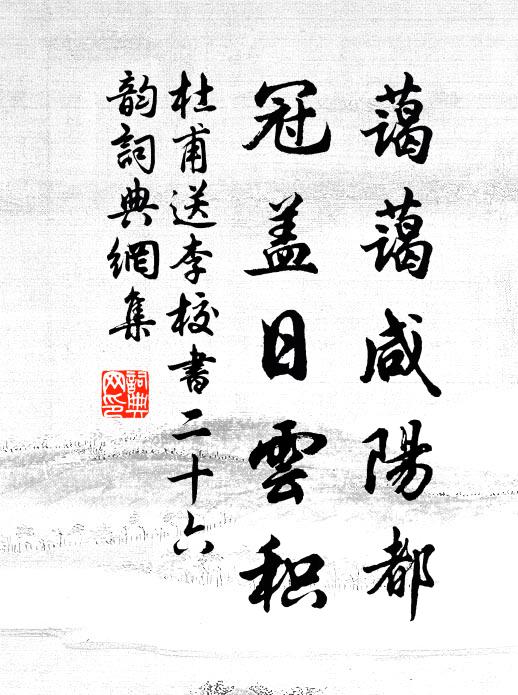 藹藹咸陽都
冠盖日雲积
杜甫送李校書二十六
韵詞典網集
詞典网印